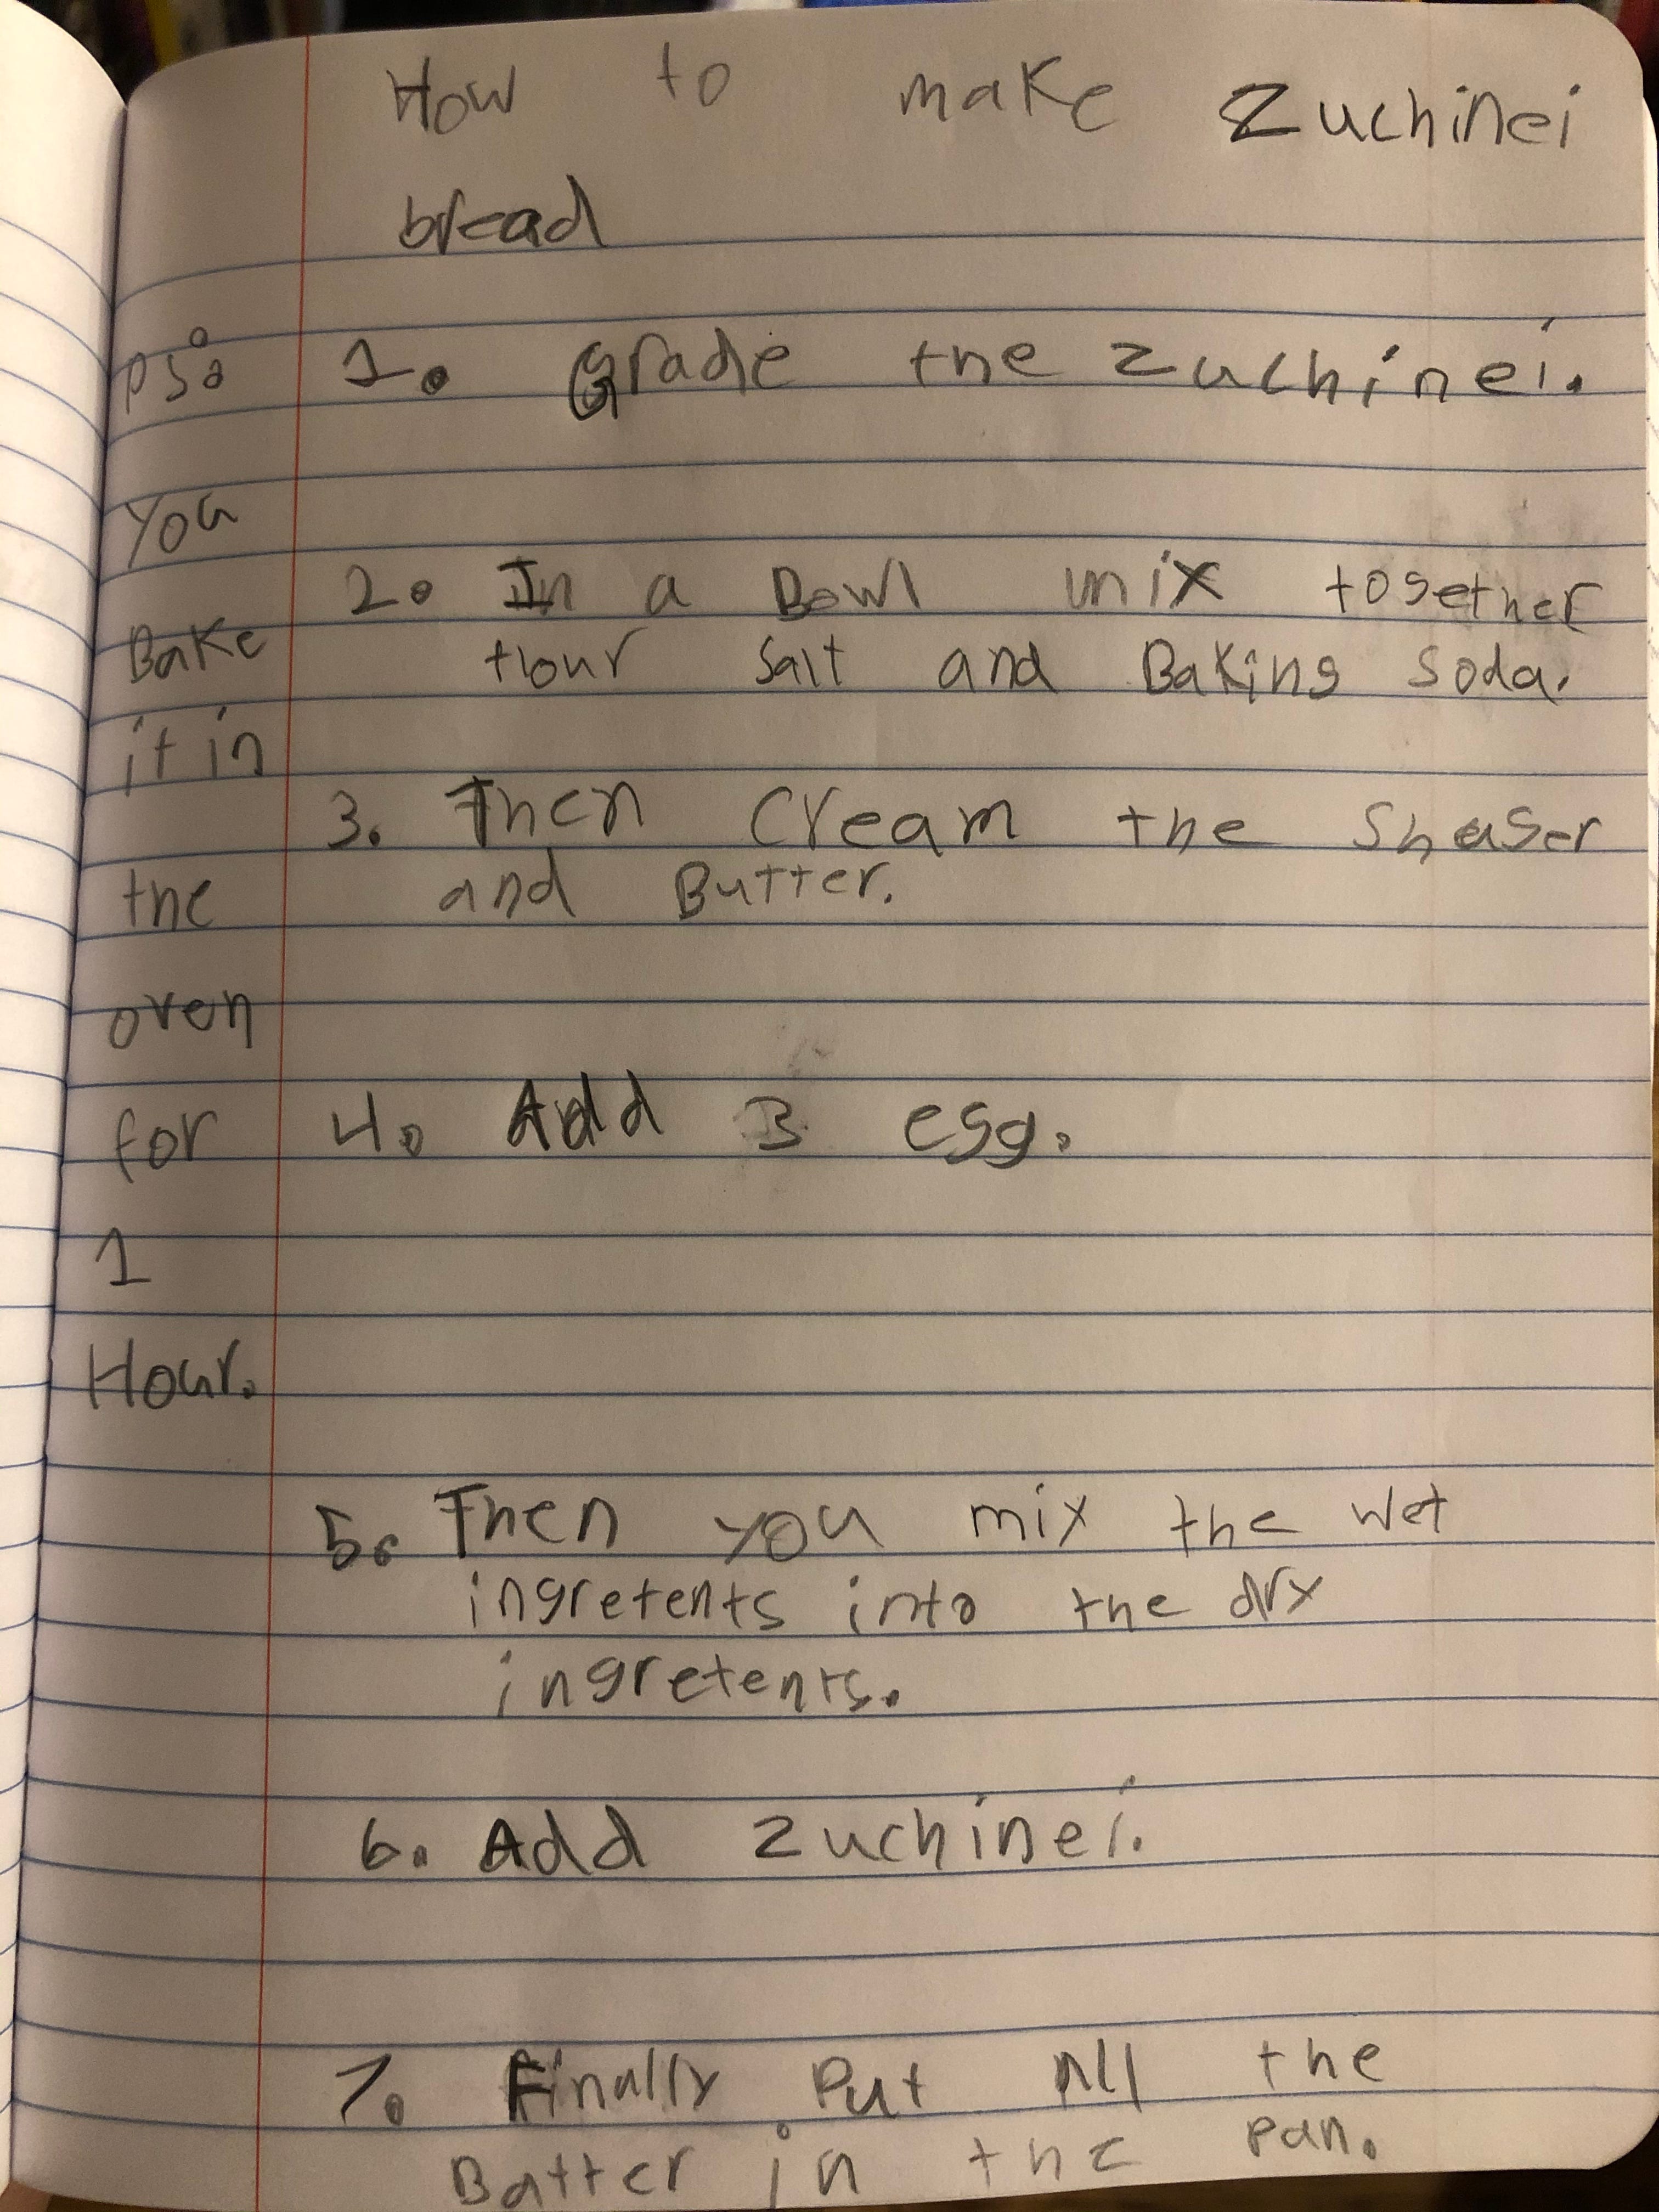 How to make Zuchinei
bread
1. Grade the Zuchinei.
2. In a Bowl mix together
flour Salt and Baking Soda.
3. Then Cream the Shuger
and Butter.
4. Add 3 egg.
5. Then you mix the wet
ingretents into the dry
ingretents.
6. Add Zuchinei.
7. Finally Put All the
Batter in the pan.
PS:
you
Bake
it in
the
oven
for
1
Hour.